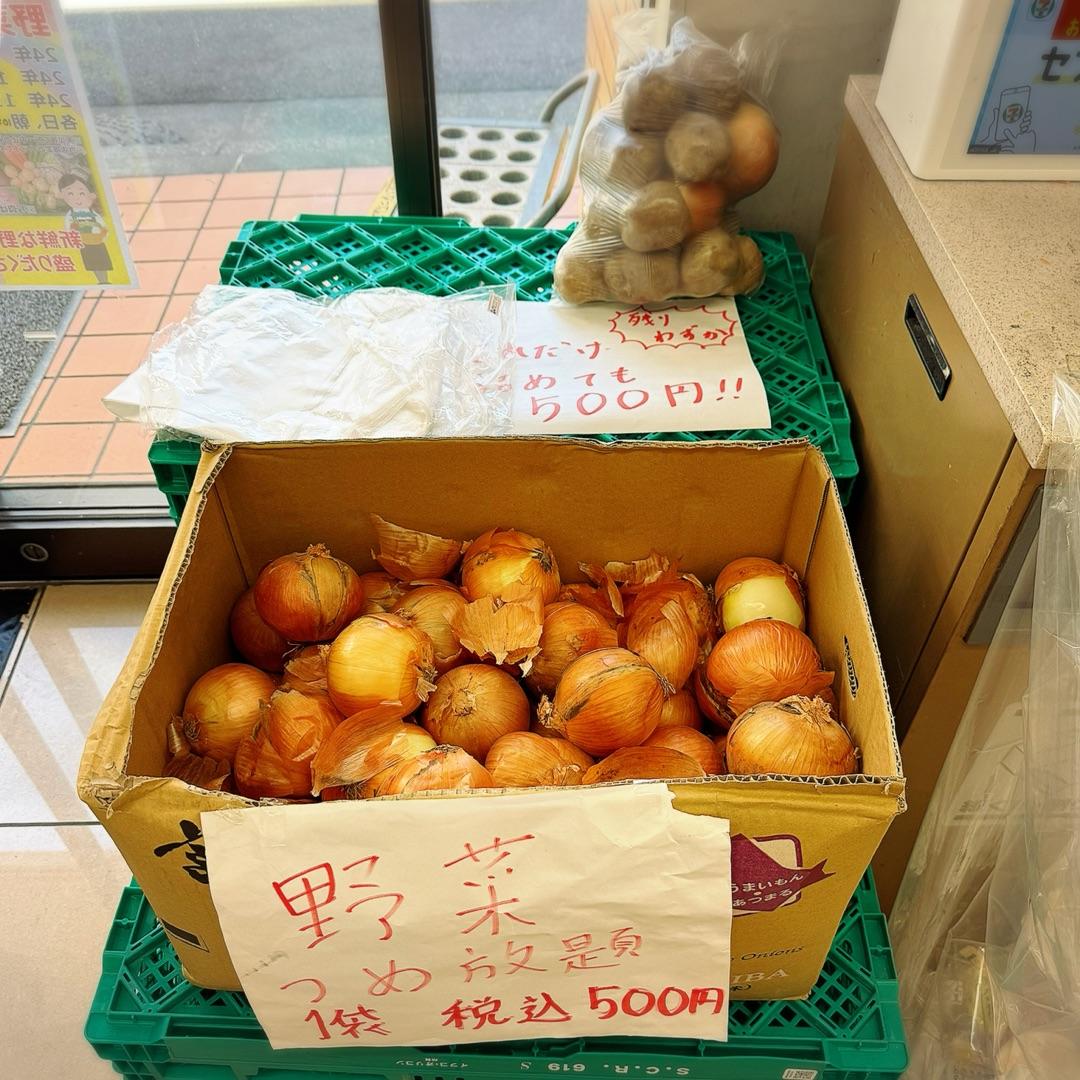 残り
わずか
れだけ
めても
500円!!
野菜
つめ放題
1袋 税込 500円
うまいもん
あつまる
Onions
野
24年
24年
24年 1
各日、朝
新鮮な野
盛りだくさ
セブ
S.C.R. 619 S